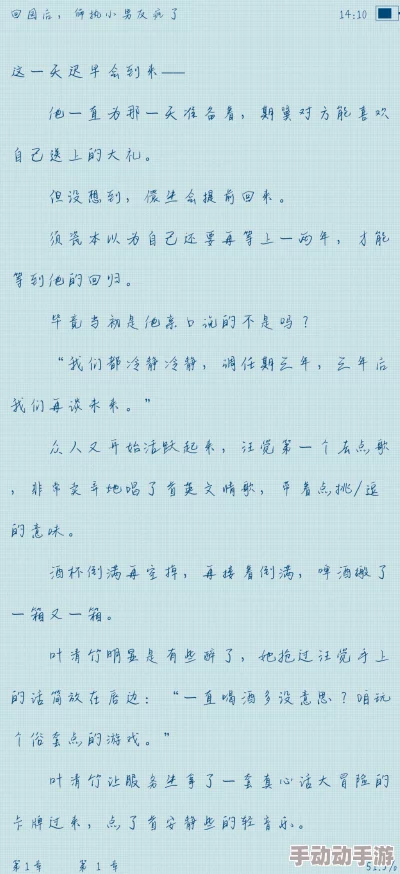 回国后，偏执小男友疯了 14:10
这一天迟早会到来——
他一直为那一天准备着，期冀对方能喜欢
自己送上的大礼。
但没想到，傻生会提前回来。
须瓷本以为自己还要再等上一两年，才能
等到他的回归。
毕竟当初是他亲口说的不是吗？
“我们都冷静冷静，调任期三年，三年后
我们再谈未来。”
众人又开始活跃起来，汪觉第一个去点歌
，非常卖弄地唱了首英文情歌，带着点挑/逗
的意味。
酒杯倒满再空掉，再接着倒满，啤酒搬了
一箱又一箱。
叶清竹明显是有些醉了，她抢过汪觉手上
的话筒放在唇边：“一直喝酒多没意思？咱玩
个俗套点的游戏。”
叶清竹让服务生拿了一套真心话大冒险的
卡牌过来，点了首安静些的轻音乐。
第1章 第1章
手动动手游